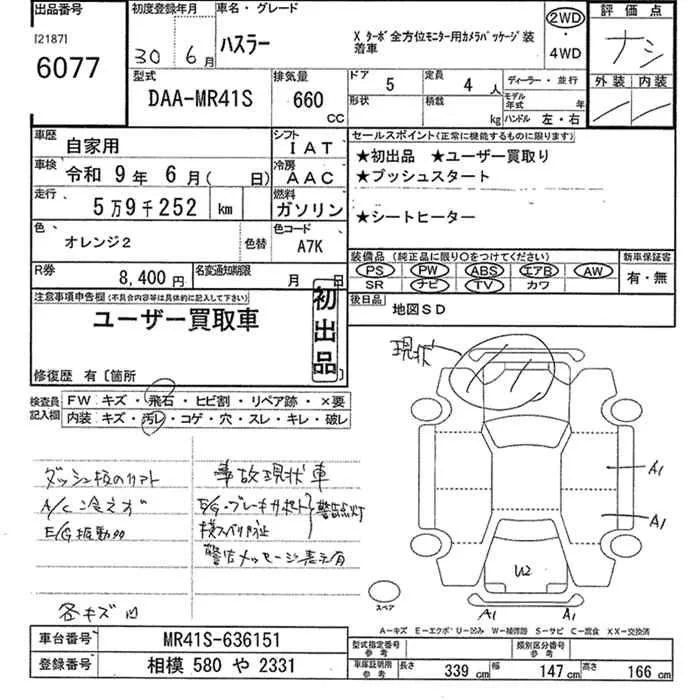 出品番号 初度登録年月 車名・グレード 評価点
[2187] 6077
30年 6月
ハスラー X ターボ 全方位モニター用カメラパッケージ装着車
2WD・4WD
ナシ
型式 排気量 ドア 定員 ディーラー・並行 外装 内装
DAA-MR41S 660 CC 5 4人
形状 積載 kg モデル年式 年 ハンドル 左・右
車歴 自家用 シフト IAT セールスポイント(正常に機能するものに限ります)
車検 令和 9年 6月( 日) 冷房 AAC
★初出品 ★ユーザー買取り
★プッシュスタート
走行 5万9千252 km 燃料 ガソリン
★シートヒーター
色 オレンジ2 色替 色コード A7K
装備品(純正品に限り○をつけてください) 新車保証書
PS PW ABS エアB AW 有・無
SR ナビ TV カワ
R券 8,400円 名変通知期限 月 日
後日品 地図SD
注意事項申告欄(不具合内容等は具体的に記入して下さい)
ユーザー買取車
初出品
修復歴 有〔箇所
検査員記入欄 FW キズ・飛石・ヒビ割・リペア跡・×要
内装 キズ・汚レ・コゲ・穴・スレ・キレ・破レ
現状
ダッシュ板のリフト 事故現状車
A/C 冷えず E/G・ブレーキサポート 警告点灯
E/G振動
横スベリ防止
警告メッセージ表示有
各キズ凹
A1
A1
U2
A1 A1
スペア
A-キズ E-エクボ U-凹み W-補修跡 S-サビ C-腐食 XX-交換済
車台番号 MR41S-636151 型式指定番号 参考 類別区分番号 参考
登録番号 相模 580 や 2331 車庫証明用 参考 長さ 339 cm 幅 147 cm 高さ 166 cm